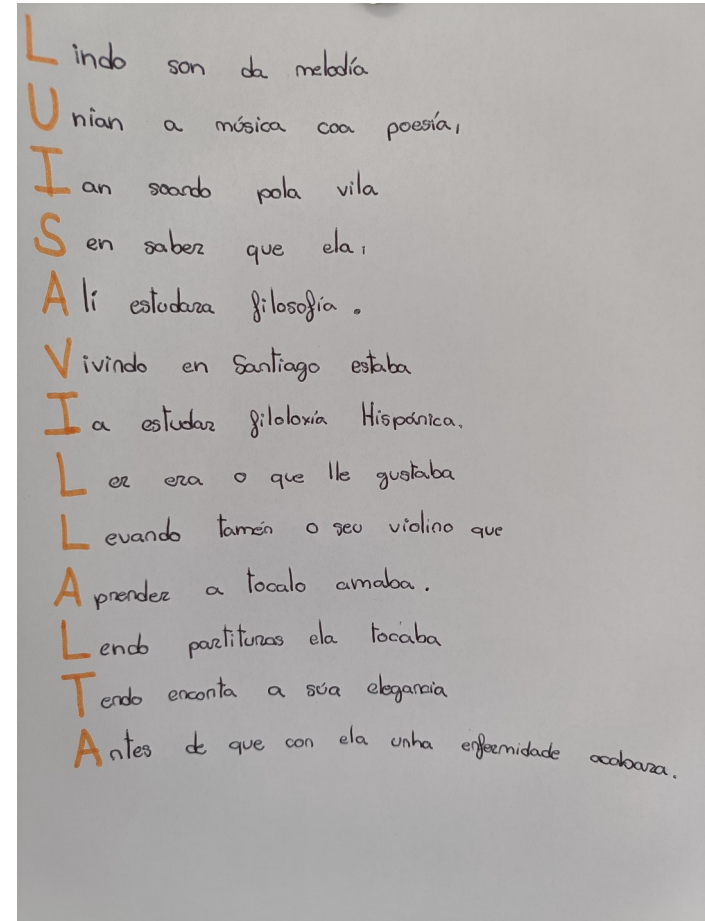 Lindo son da melodía
Unian a música coa poesía,
Ian soando pola vila
Sen saber que ela,
Alí estudara filosofía.
Vivindo en Santiago estaba
Ia estudar filoloxía Hispánica.
Ler era o que lle gustaba
Levando tamén o seu violino que
Aprender a tocalo amaba.
Lendo partituras ela tocaba
Tendo enconta a súa elegancia
Antes de que con ela unha enfermidade acabara.